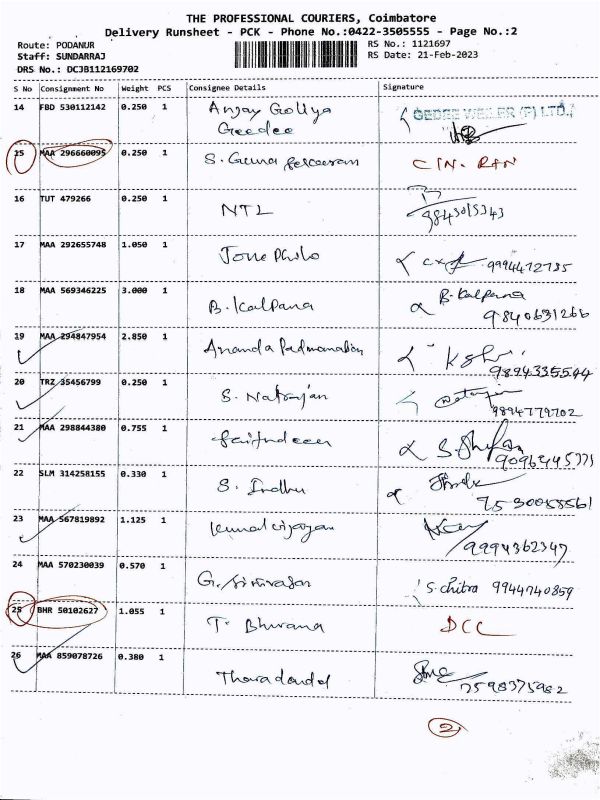 THE PROFESSIONAL COURIERS, Coimbatore
Delivery Runsheet - PCK - Phone No.:0422-3505555 - Page No.:2
Route: PODANUR
RS No.: 1121697
Staff: SUNDARRAJ
RS Date: 21-Feb-2023
DRS No.: DCJB112169702
S No Consignment No Weight PCS Consignee Details Signature
14 FBD 530112142 0.250 1 Anjay Gollya
Geedee
GEDEE WEILER (P) LTD.,
15 MAA 296660095 0.250 1 S. Guna
16 TUT 479266 0.250 1 NTL 9843015343
17 MAA 292655748 1.050 1 9994472735
18 MAA 569346225 3.000 1 B. Kalpana B. Kalpana
9840631266
19 MAA 294847954 2.850 1 Ananda Padmanaban
9894335594
20 TRZ 35456799 0.250 1 S. Natrajan
9894779702
21 MAA 298844380 0.755 1
22 SLM 314258155 0.330 1 S. Indhu
7530058561
23 MAA 567819892 1.125 1
9994362347
24 MAA 570230039 0.570 1 G. Srinivasan S. Chitra 9944740859
25 BHR 50102627 1.055 1 T. Bhuvana DCC
26 MAA 859078726 0.380 1
7598375982
2